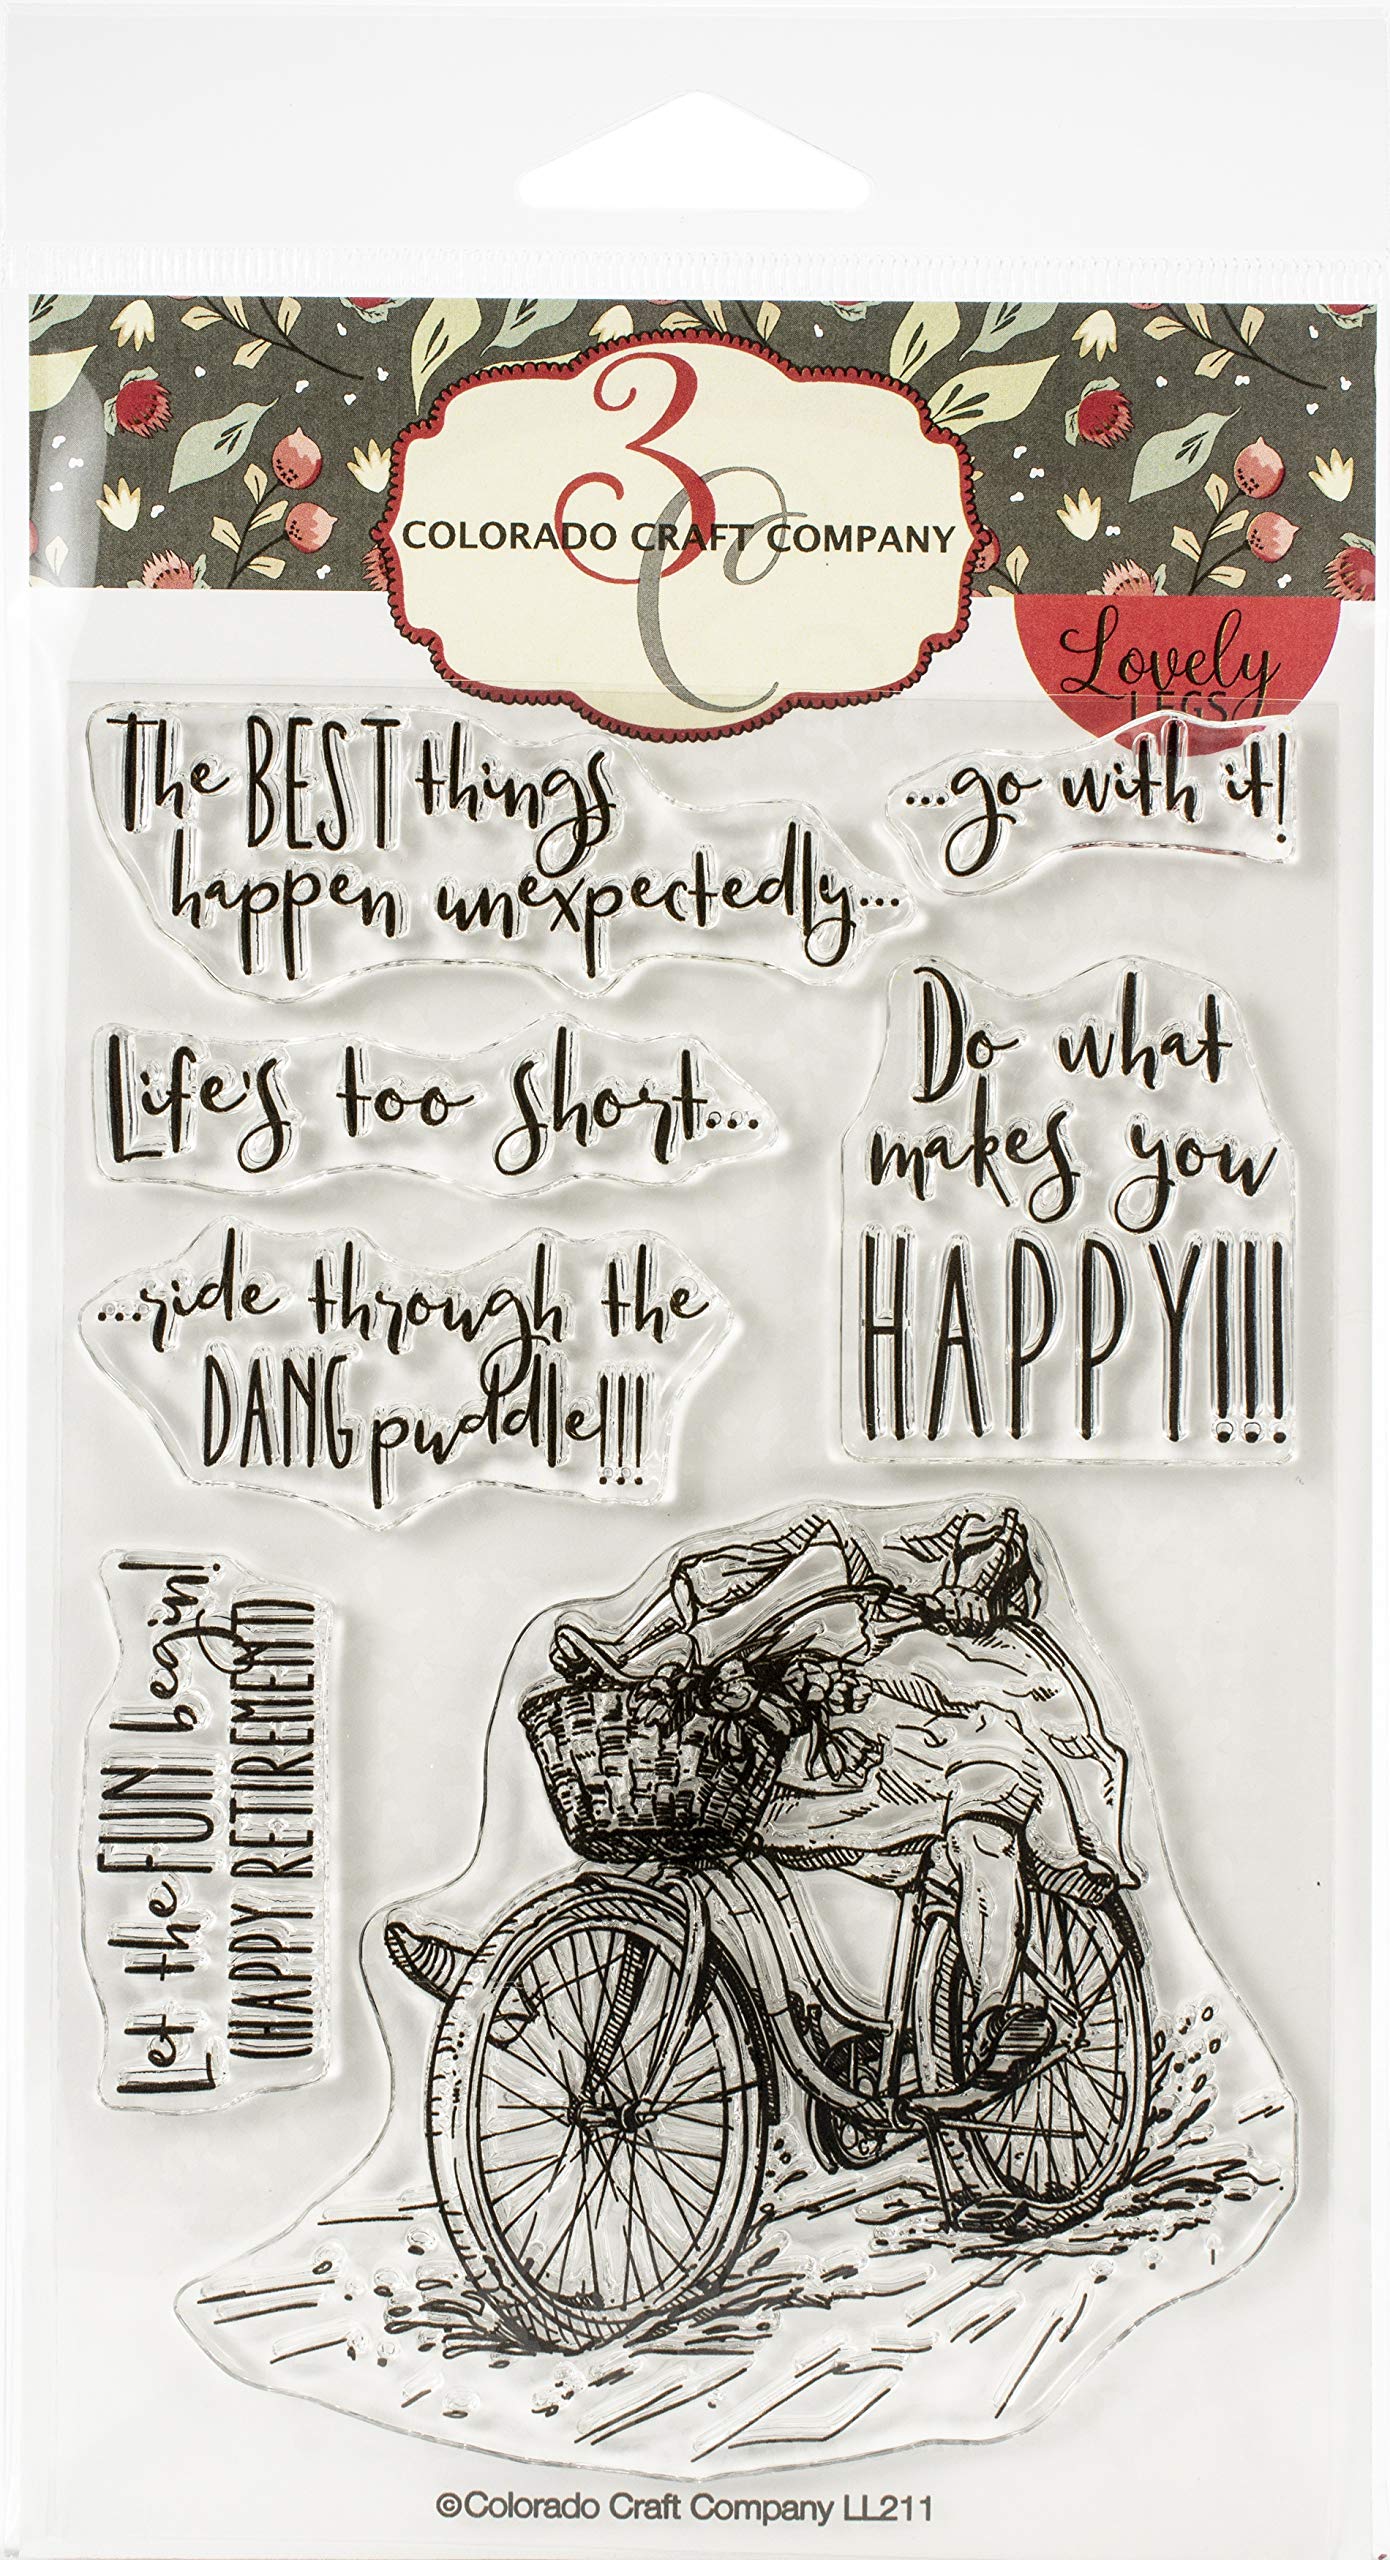 3C
COLORADO CRAFT COMPANY
Lovely
LEGS
The BEST things
happen unexpectedly...
...go with it!
Life's too short...
Do what
makes you
HAPPY!!!
...ride through the
DANG puddle!!!
Let the FUN begin!
HAPPY RETIREMENT!
©Colorado Craft Company LL211